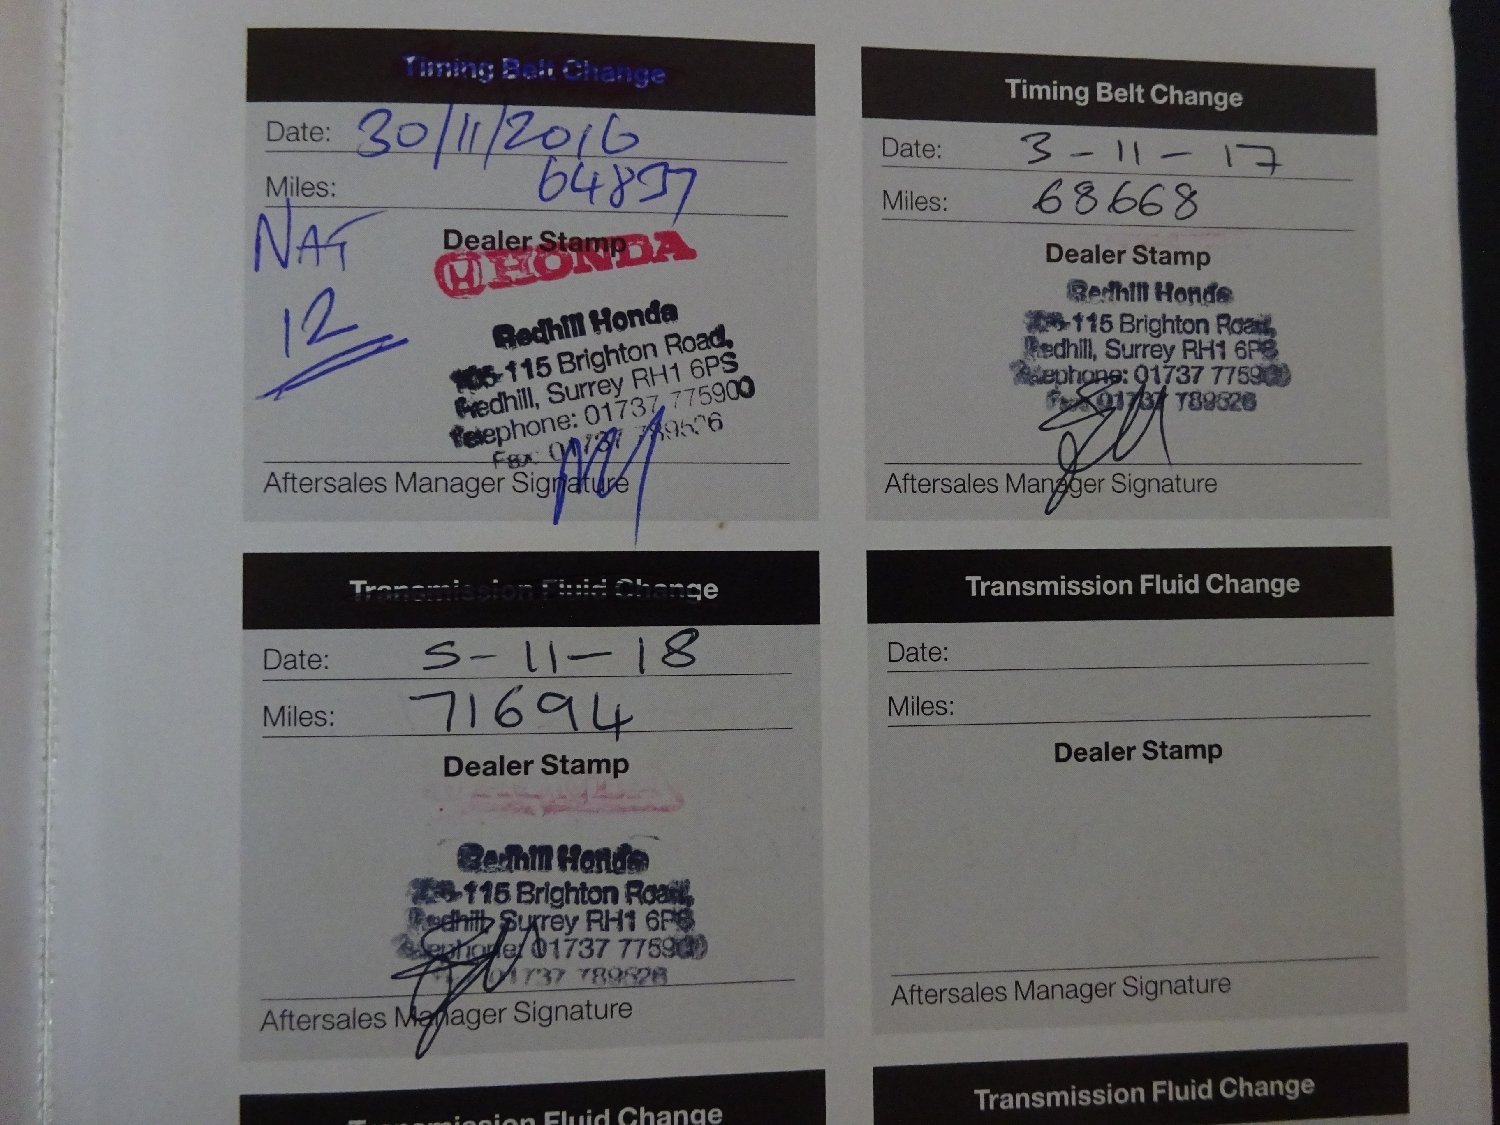 Timing Belt Change
Date: 30/11/2016
Miles: 64897
NAT
12
Dealer Stamp
HONDA
Redhill Honda
115 Brighton Road,
Redhill, Surrey RH1 6PS
Telephone: 01737 775900
Fax: 01737 789526
Aftersales Manager Signature
Timing Belt Change
Date: 3-11-17
Miles: 68668
Dealer Stamp
Redhill Honda
115 Brighton Road,
Redhill, Surrey RH1 6PS
Telephone: 01737 775900
Fax: 01737 789526
Aftersales Manager Signature
Transmission Fluid Change
Date: 5-11-18
Miles: 71694
Dealer Stamp
Redhill Honda
115 Brighton Road,
Redhill, Surrey RH1 6PS
Telephone: 01737 775900
01737 789526
Aftersales Manager Signature
Transmission Fluid Change
Date:
Miles:
Dealer Stamp
Aftersales Manager Signature
Transmission Fluid Change
Transmission Fluid Change